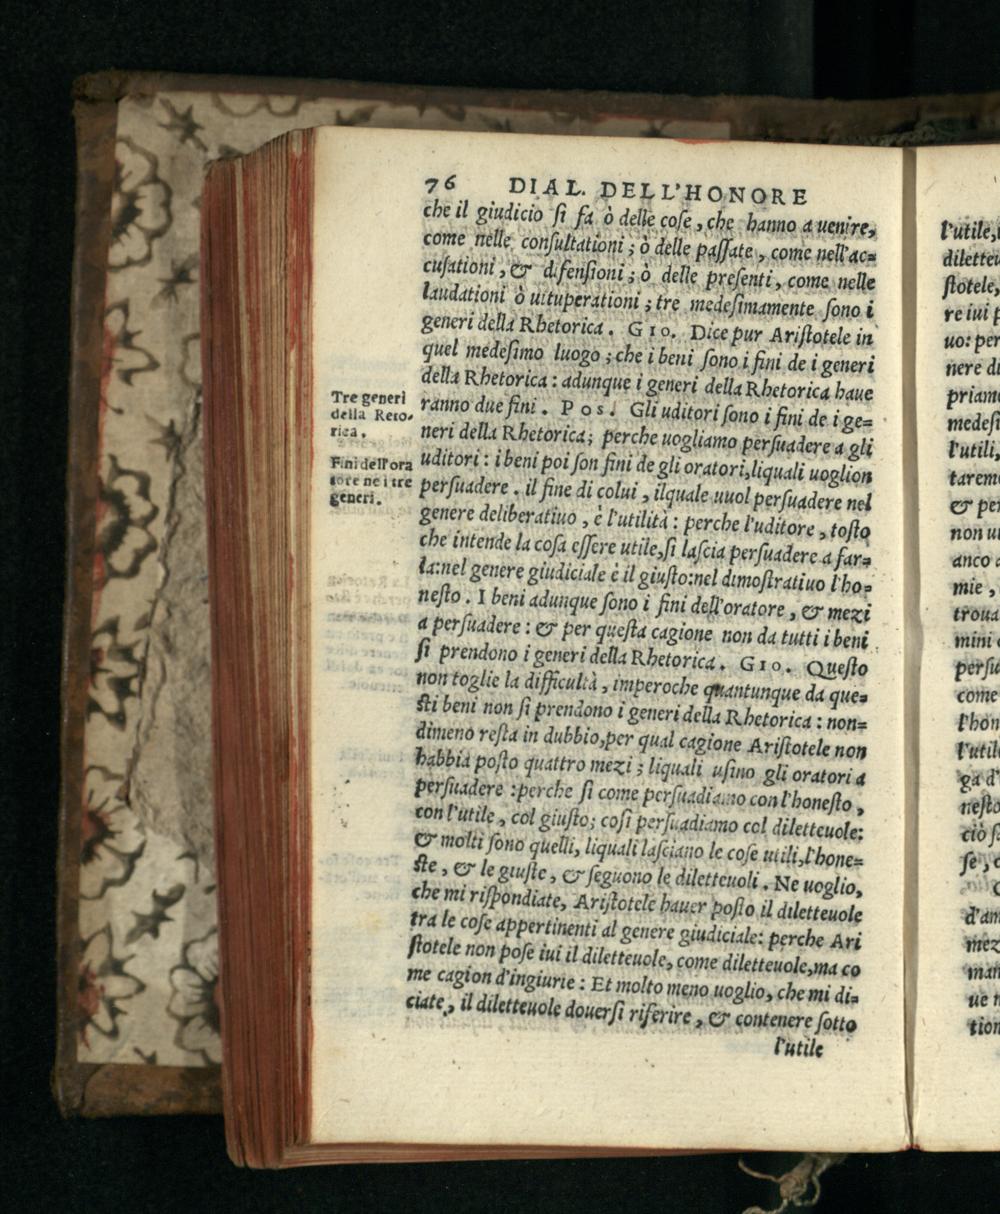 76 DIAL. DELL'HONORE
che il giudicio ſi fa ò delle coſe, che hanno a uenire,
come nelle conſultationi; ò delle paſſate, come nell'ac=
cuſationi, & difenſioni; ò delle preſenti, come nelle
laudationi ò uituperationi; tre medeſimamente ſono i
generi della Rhetorica. GIO. Dice pur Ariſtotele in
quel medeſimo luogo; che i beni ſono i fini de i generi
della Rhetorica: adunque i generi della Rhetorica haue
ranno due fini. POS. Gli uditori ſono i fini de i ge=
neri della Rhetorica; perche uogliamo perſuadere a gli
uditori: i beni poi ſon fini de gli oratori, liquali uoglion
perſuadere. il fine di colui, ilquale uuol perſuadere nel
genere deliberatiuo, è l'utilità: perche l'uditore, toſto
che intende la coſa eſſere utile, ſi laſcia perſuadere a far=
la: nel genere giudiciale è il giuſto: nel dimoſtratiuo l'ho=
neſto. I beni adunque ſono i fini dell'oratore, & mezi
a perſuadere: & per queſta cagione non da tutti i beni
ſi prendono i generi della Rhetorica. GIO. Queſto
non toglie la difficultà, imperoche quantunque da que=
ſti beni non ſi prendono i generi della Rhetorica: non=
dimeno reſta in dubbio, per qual cagione Ariſtotele non
habbia poſto quattro mezi; liquali uſino gli oratori a
perſuadere: perche ſi come perſuadiamo con l'honeſto,
con l'utile, col giuſto; coſi perſuadiamo col diletteuole:
& molti ſono quelli, liquali laſciano le coſe utili, l'hone=
ſte, & le giuſte, & ſeguono le diletteuoli. Ne uoglio,
che mi riſpondiate, Ariſtotele hauer poſto il diletteuole
tra le coſe appertinenti al genere giudiciale: perche Ari
ſtotele non poſe iui il diletteuole, come diletteuole, ma co
me cagion d'ingiurie: Et molto meno uoglio, che mi di=
ciate, il diletteuole douerſi riferire, & contenere ſotto
l'utile
Tre generi
della Reto-
rica.
Fini dell'ora
tore ne i tre
generi.
l'utile,
dilette
ſtotele,
re iui p
uo: per
nere di
priam
medeſi
l'utili,
tarem
& pe
non u
anco a
mie,
troua
mini
perſu
come
l'hon
l'util
ga d'
neſto
ciò ſ
ſe,
d'am
mez
man
ue n
tion